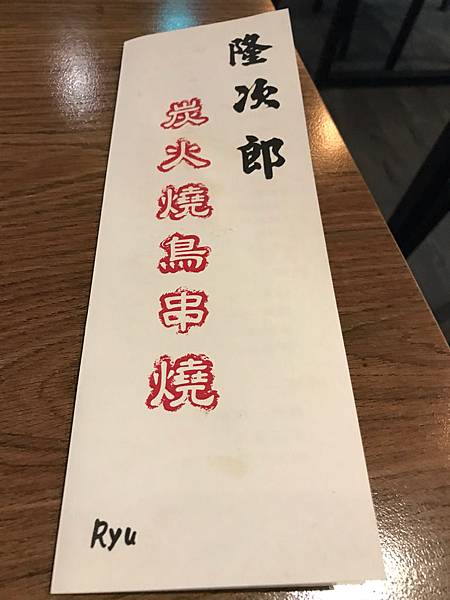 隆次郎
炭火燒鳥串燒
Ryu